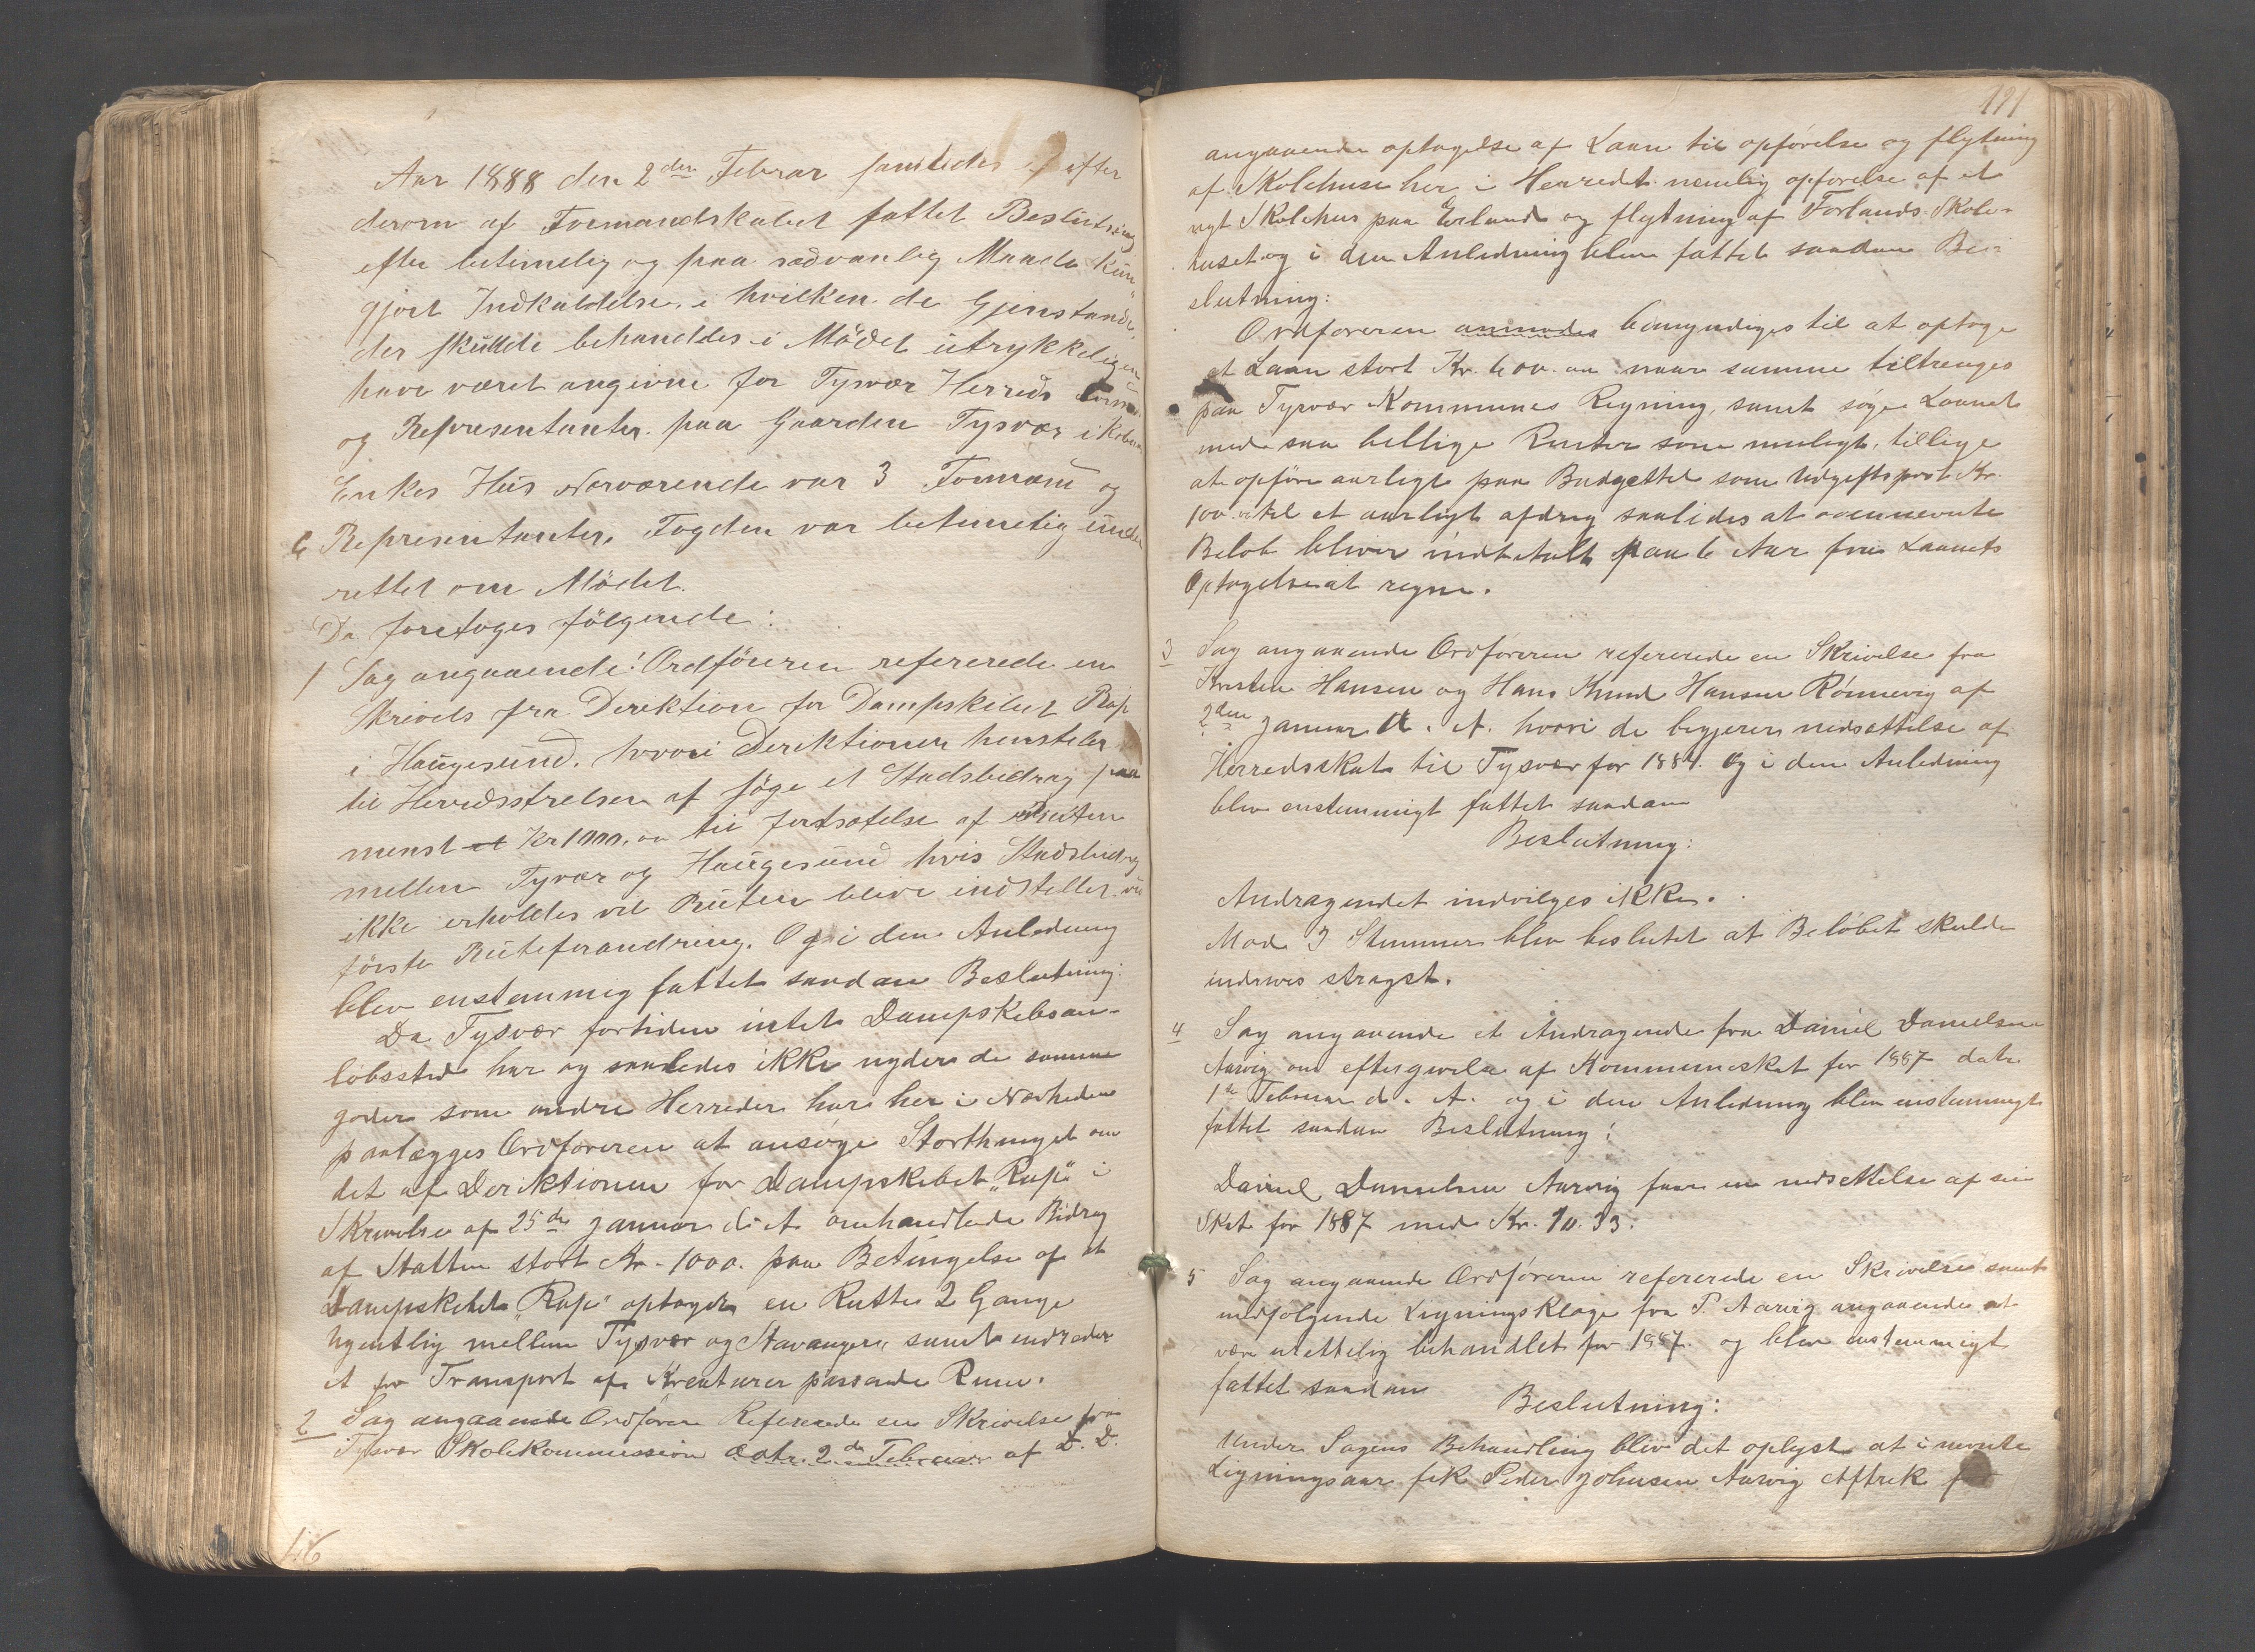 Aar 1888 den 2den Februar samledes efter
derom af Formandskabet fattet Beslutning
efter betimelig og paa sædvanlig Maade kun-
gjort Indkaldelse, i hvilken de Gjenstande,
der skulde behandles i Mödet utrykkeligen
have været angivne for Tysvær Herreds Form.
og Representanter paa Gaarden Tysvær i
Enkes Hus Nærværende var 3 Formænd og
6 Representanter, Fogden var betimelig under
rettet om Mödet.
Da foretoges fölgende:
1 Sag angaaende: Ordföreren refererede en
Skrivels fra Direktion for Dampskibet Rap
i Haugesund, hvori Direktionen henstiler
til Herredsstrelsen af söge et Stadsbidrag paa
menst et Kr 1000,00 til fortsætelse af Ruten
mellem Tysvær og Haugesund hvis Stadsbidrag
ikke erholdes vil Ruten blive indstillet ved
förste Ruteforandring. Og i den Anledning
blev enstemmig fattet saadan Beslutning:
Da Tysvær fortiden intet Dampskibsan-
löbssted har og saaledes ikke nyder de samme
goder som andre Herreder har her i Nærheden
paalægges Ordföreren at ansöge Storthinget om
det af Deriktionen for Dampskibet "Rap" i
Skrivelse af 25de Januar d. A. omhandlede Bidrag
af Statten stort Kr. 1000. paa Betingelse af at
Dampskibet "Rap" optager en Rutte 2 Gange
ugentlig mellem Tysvær og Stavanger, samt indreder
et for Transport af Kreaturer passende Rum.
2 Sag angaaende Ordförere Refererede en Skrivelse fra
Tysvær Skolekommission datr. 2de Februar af D. D.
46
191
angaaende optagelse af Laan til opförelse og flytning
af Skolehuse her i Herredet nemlig opförelse af et
nyt Skolehus paa Erland og flytning af Forlands Skole-
huset og i den Anledning blev fattet saadan Be-
slutning:
Ordföreren anmodes bemyndiges til at optage
et Laan stort Kr. 600.00 naar samme tiltrenges
paa Tysvær Kommunes Regning, samt söge Laanet
med saa billige Renter som muligt, tillige
at opföre aarligt paa Budgettet som Udgiftspost Kr.
100 til et aarligt afdrag saaledes at ovennevnte
Belöb bliver indbetalt paa 6 Aar fra Laanets
Optagelse at regne.
3 Sag angaaende Ordföreren refererede en Skrivelse fra
Kristen Hansen og Hans Knud Hansen Rönnevig af
2den Januar d. A. hvori de begjerer nedsættelse af
Herredsskat til Tysvær for 1887. Og i den Anledning
blev enstemmigt fattet saadan
Beslutning:
Andragendet indvilges ikke.
Mod 3 Stemmer blev beslutet at Belöbet skulde
inderves stragst.
4 Sag angaaende et Andragende fra Daniel Danielsen
Aarvig om eftergivelse af Kommuneskat for 1887 dat.
1te Februar d. A. og i den Anledning blev enstemmigt
fattet saadan Beslutning:
Daniel Danielsen Aarvig faar en nedsettelse af sin
Skat for 1887 med Kr. 10.33.
5 Sag angaaende Ordföreren refererede en Skrivelse samt
medfölgende Ligningsklage fra P. Aarvig angaaende at
være urettelig behandlet for 1887. og blev enstemmigt
fattet saadan
Beslutning:
Under Sagens Behandling blev det oplyst at i nevnte
Ligningsaar fik Peder Johnsen Aarvig Aftrek for